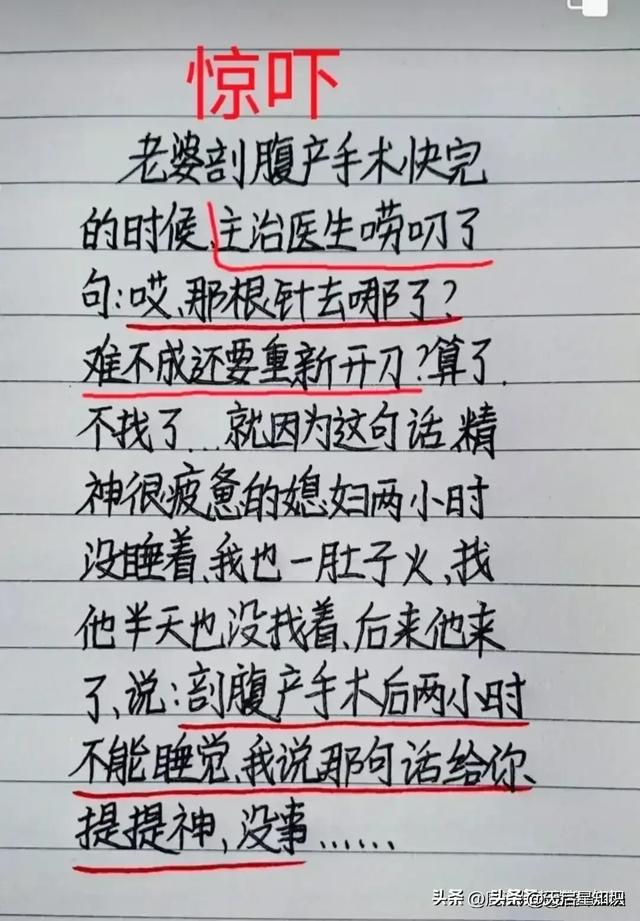 惊吓
老婆剖腹产手术快完
的时候,主治医生唠叨了
句:哎,那根针去哪了?
难不成还要重新开刀?算了,
不找了...就因为这句话,精
神很疲惫的媳妇两小时
没睡着,我也一肚子火,找
他半天也没找着,后来他来
了,说:剖腹产手术后两小时
不能睡觉,我说那句话给你
提提神,没事......